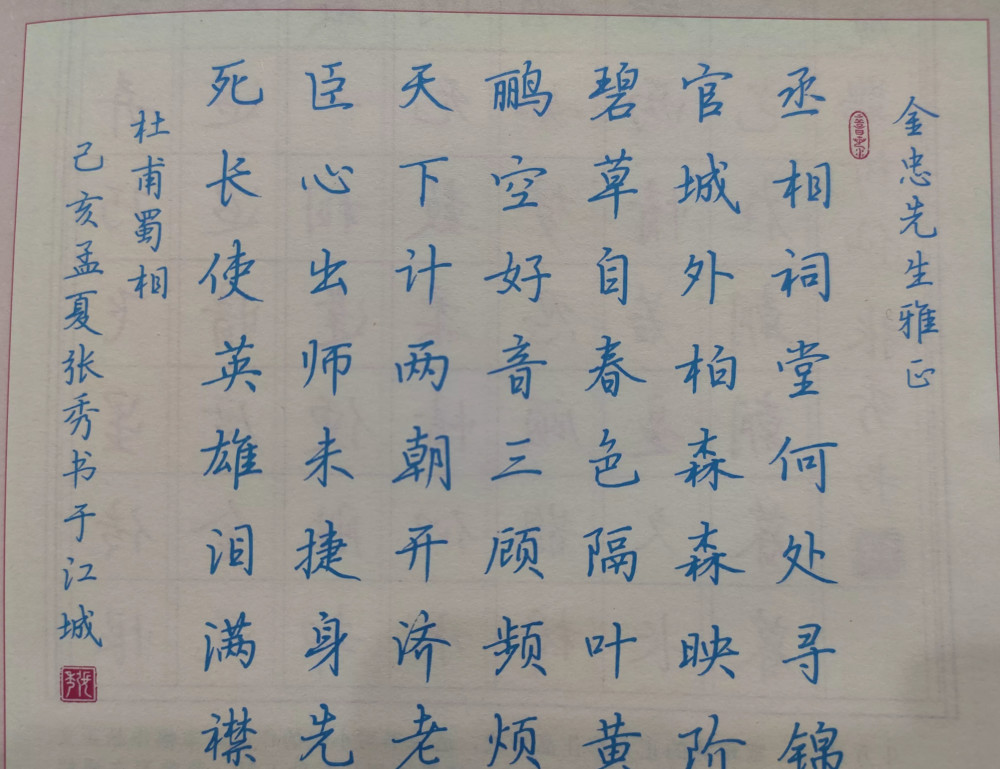 金忠先生雅正
丞相祠堂何处寻锦
官城外柏森森映阶
碧草自春色隔叶黄
鹂空好音三顾频烦
天下计两朝开济老
臣心出师未捷身先
死长使英雄泪满襟
杜甫蜀相
己亥孟夏张秀书于江城